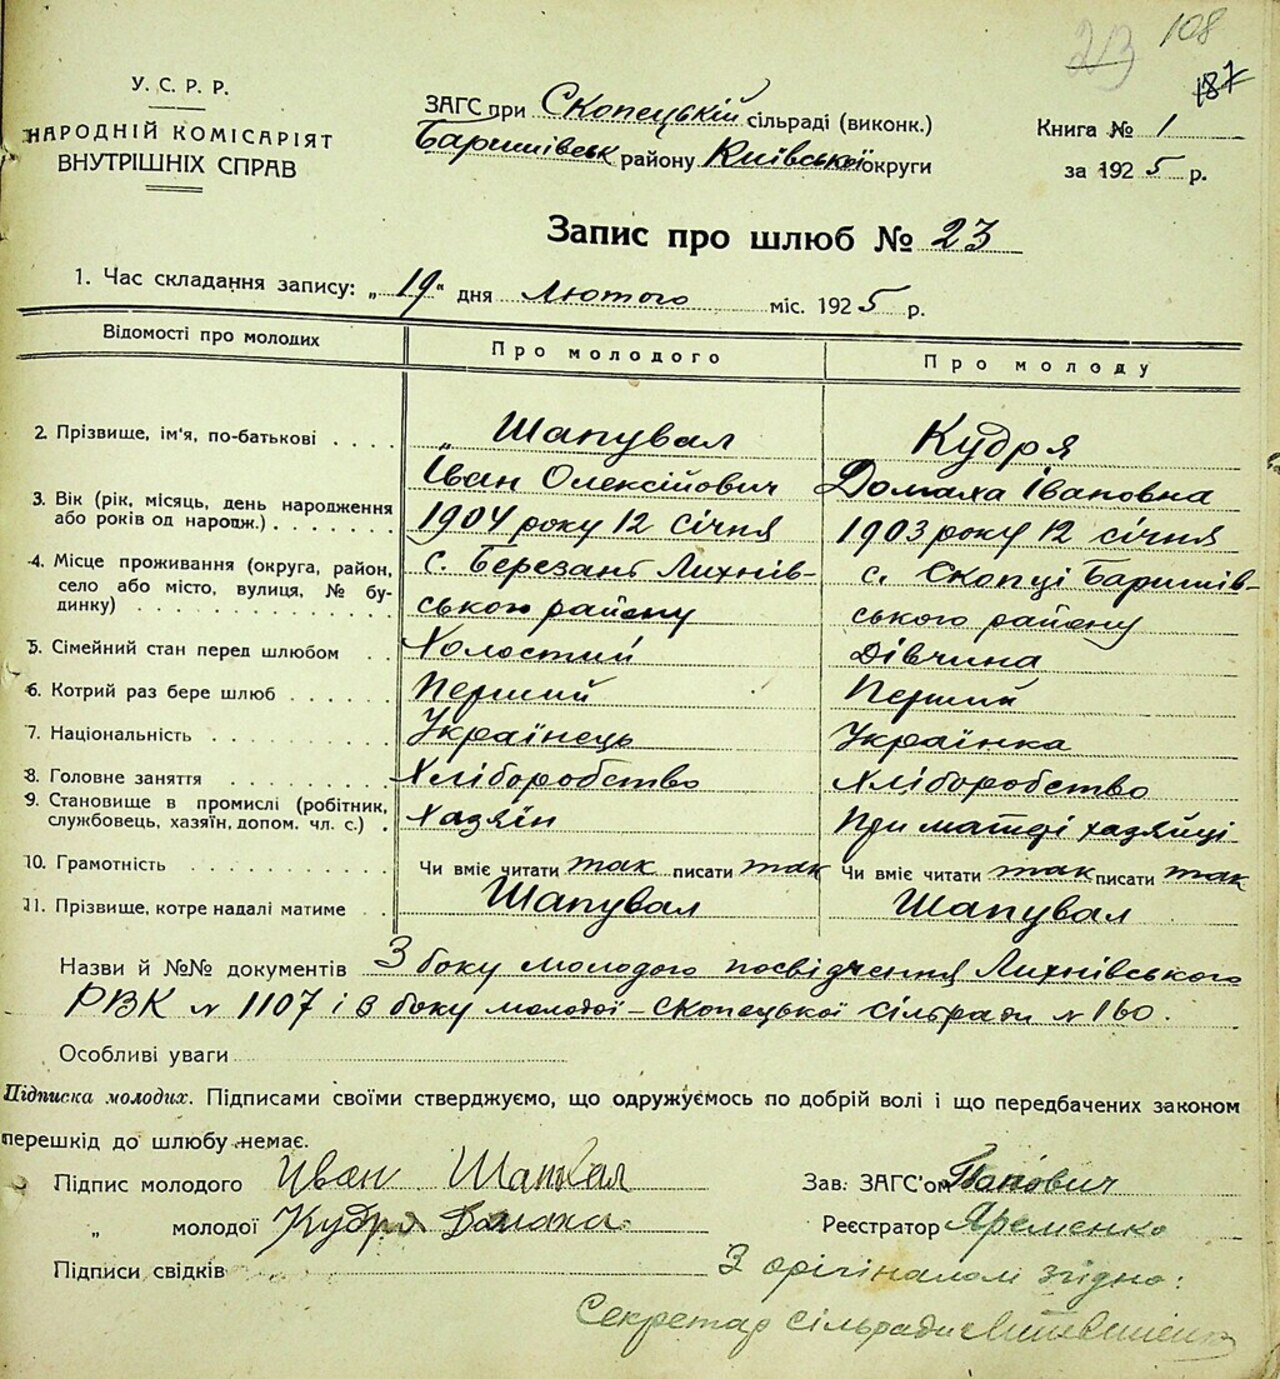 213 108
187
У. С. Р. Р.
НАРОДНІЙ КОМІСАРІЯТ
ВНУТРІШНІХ СПРАВ
ЗАГС при Скопецькій сільраді (виконк.)
Баришівськ району Київської округи
Книга № 1
за 1925 р.
Запис про шлюб № 23
1. Час складання запису: „19" дня Лютого міс. 1925 р.
Відомості про молодих Про молодого Про молоду
2. Прізвище, ім'я, по-батькові . . . . „ Шапувал Кудря
Іван Олексійович Домаха Івановна
3. Вік (рік, місяць, день народження
або років од народж.) . . . . . . . 1904 року 12 січня 1903 року 12 січня
4. Місце проживання (округа, район, с. Березань Лихнів- с. Скопці Баришів-
село або місто, вулиця, № бу-
динку) . . . . . . . . . . . . ського району ського району
5. Сімейний стан перед шлюбом . . Холостий Дівчина
6. Котрий раз бере шлюб . . . . . . Перший Перший
7. Національність . . . . . . . . . . Українець Українка
8. Головне заняття . . . . . . . . . Хліборобство Хліборобство
9. Становище в промислі (робітник,
службовець, хазяїн, допом. чл. с.) . Хазяїн При матері хазяйці
10. Грамотність . . . . . . . . . . . Чи вміє читати так писати так Чи вміє читати так писати так
11. Прізвище, котре надалі матиме . . Шапувал Шапувал
Назви й №№ документів З боку молодого посвідчення Лихнівського
РВК № 1107 і з боку молодої – Скопецької сільради № 160.
Особливі уваги
Підписка молодих. Підписами своїми стверджуємо, що одружуємось по добрій волі і що передбачених законом
перешкід до шлюбу немає.
Підпис молодого Иван Шапвал Зав. ЗАГС'ом Панович
„ молодої Кудря Домаха Реєстратор Яременко
Підписи свідків З оріґіналом згідно:
Секретар сільради